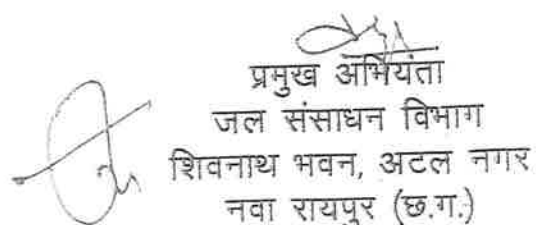 प्रमुख अभियंता
जल संसाधन विभाग
शिवनाथ भवन, अटल नगर
नवा रायपुर (छ.ग.)